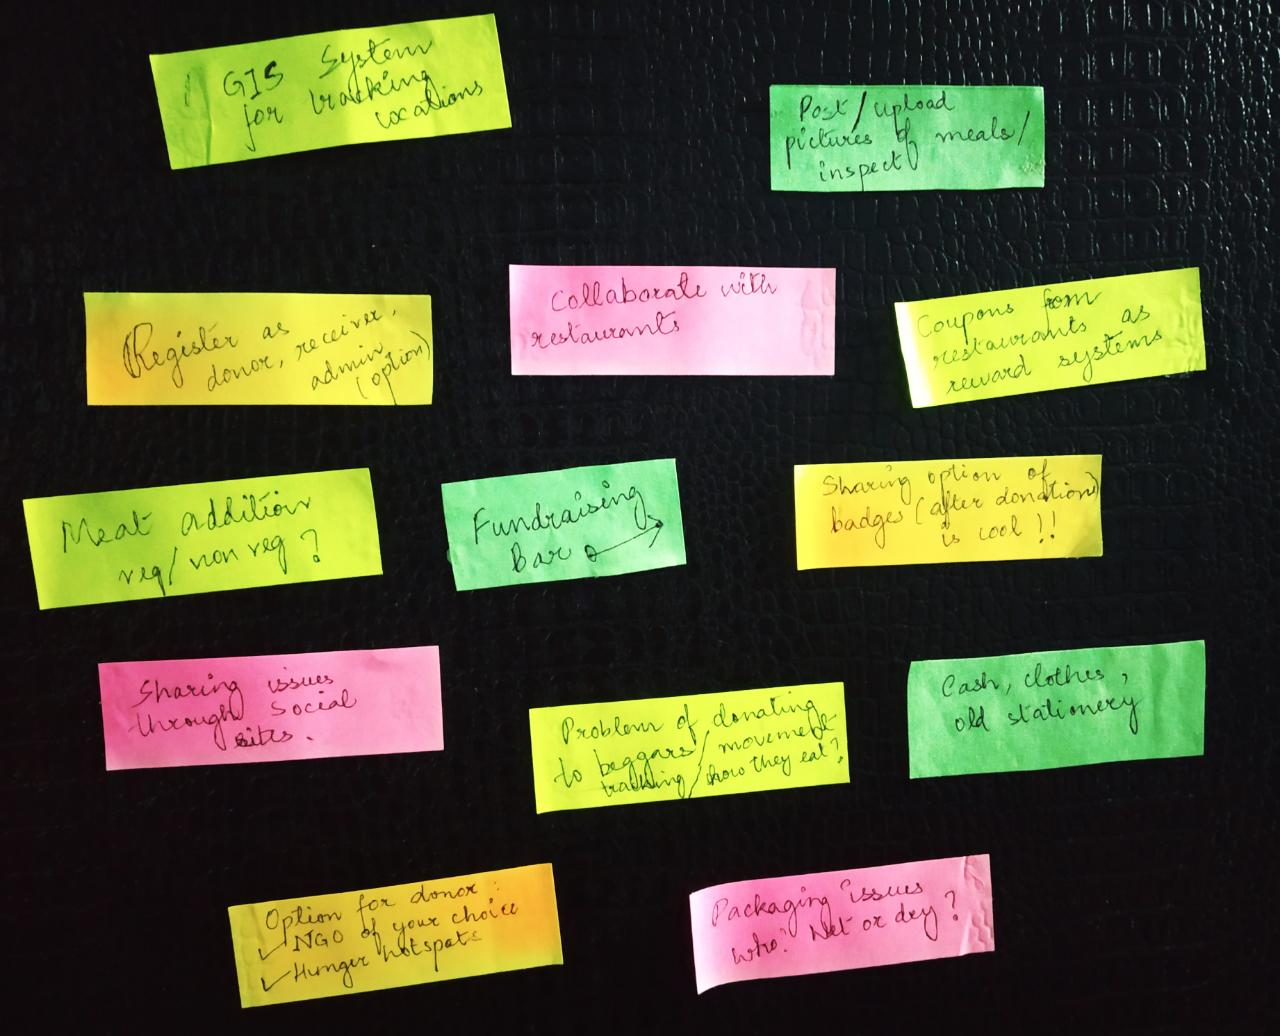 GIS System
for tracking
locations
Post/upload
pictures of meals/
inspect
Register as
donor, receiver,
admin
(option)
Collaborate with
restaurants
Coupons from
restaurants as
reward systems
Meat addition
veg/non veg?
Fundraising
Bar
Sharing option of
badges (after donation)
is cool!!
Sharing issues
through social
sites.
Problem of donating
to beggars/movement
tracking/how they eat?
Cash, clothes,
old stationery
Option for donor:
✓ NGO of your choice
✓ Hunger hotspots
Packaging issues
who? Wet or dry?